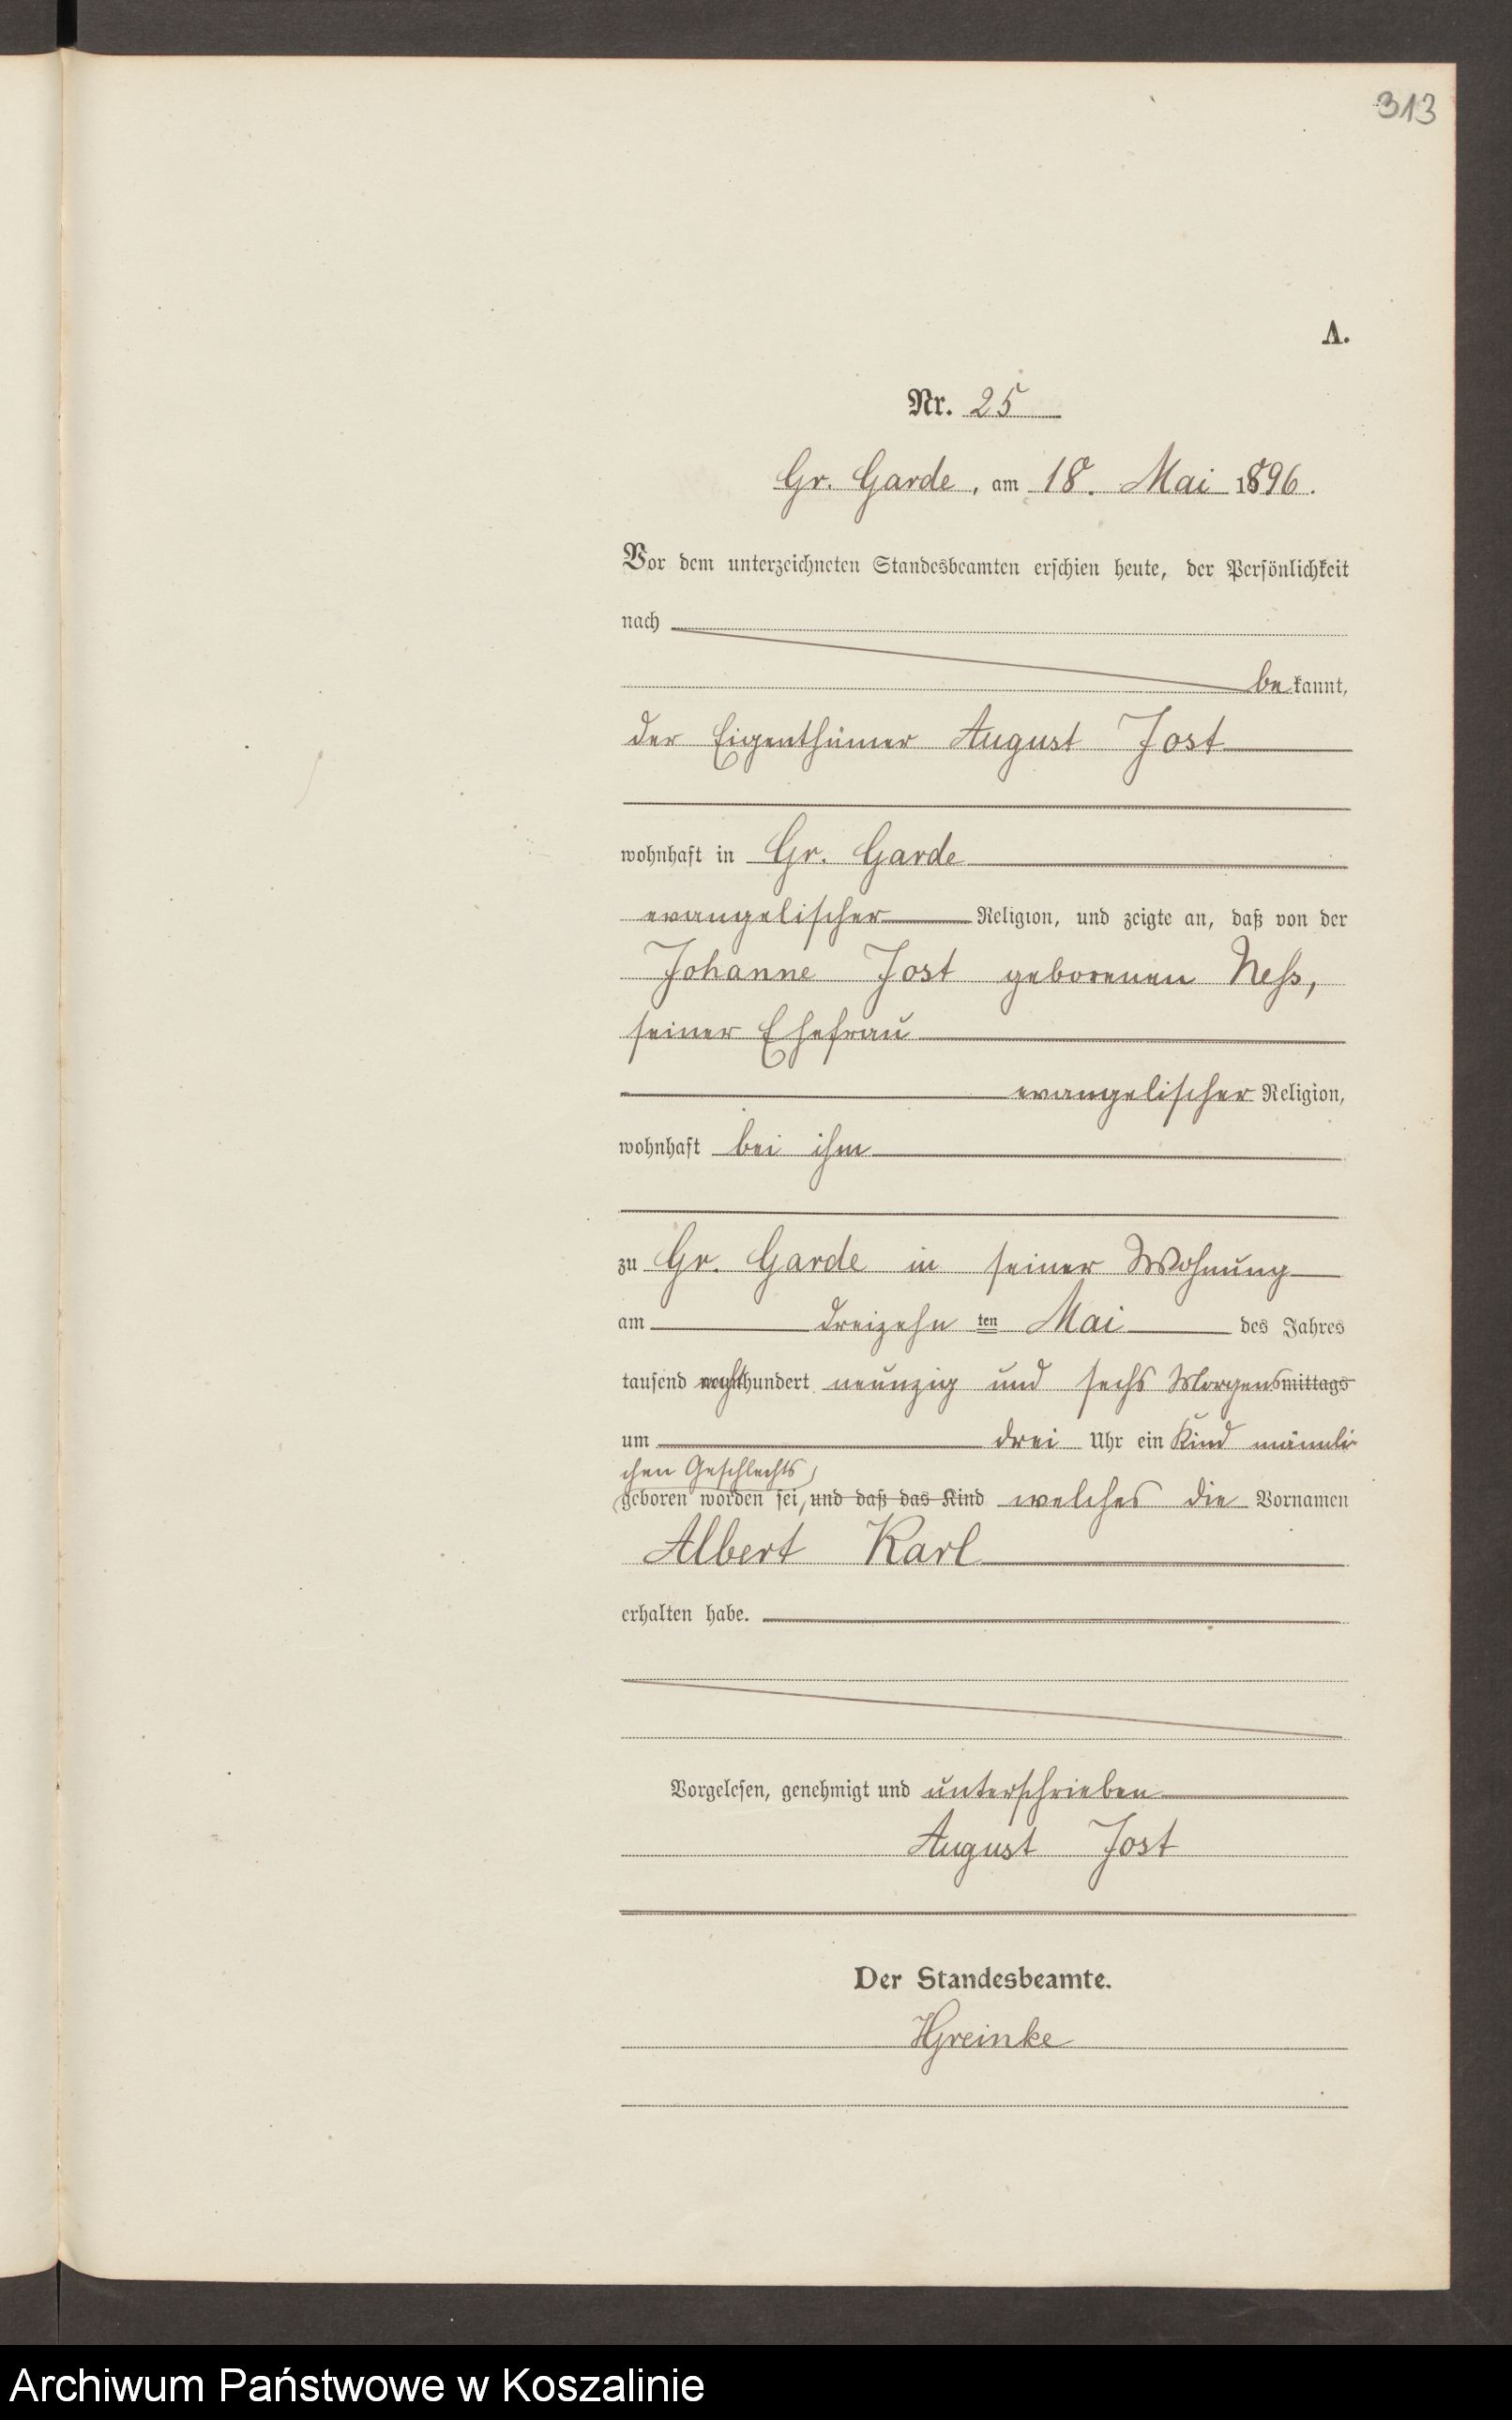 313
A.
Nr. 25
Gr. Garde, am 18. Mai 1896.
Vor dem unterzeichneten Standesbeamten erschien heute, der Persönlichkeit
nach
be kannt,
der Eigenthümer August Jost
wohnhaft in Gr. Garde
evangelischer Religion, und zeigte an, daß von der
Johanne Jost geborenen Neß,
seiner Ehefrau
evangelischer Religion,
wohnhaft bei ihm
zu Gr. Garde in seiner Wohnung
am dreizehn ten Mai des Jahres
tausend achthundert neunzig und sechs Morgens mittags
um drei Uhr ein Kind männli
chen Geschlechts
geboren worden sei, und daß das Kind welches die Vornamen
Albert Karl
erhalten habe.
Vorgelesen, genehmigt und unterschrieben
August Jost
Der Standesbeamte.
Greinke
Archiwum Państwowe w Koszalinie